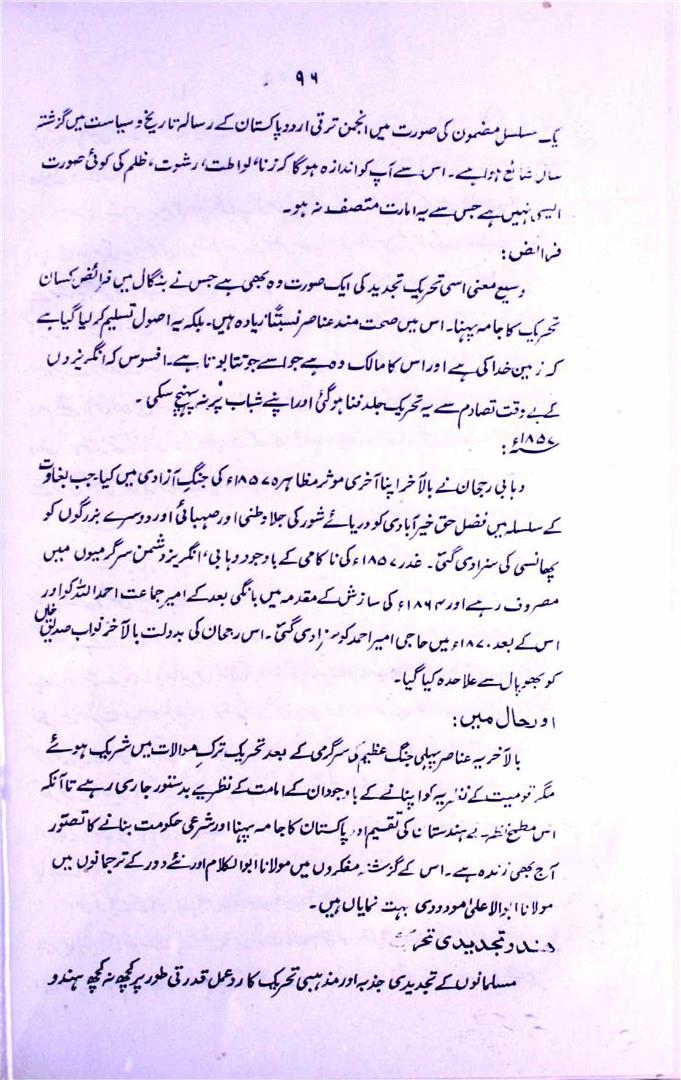 ۹۶
یک سلسل مضمون کی صورت میں انجمن ترقی اردو پاکستان کے رسالہ تاریخ و سیاست میں گزشتہ
سال شائع ہوا ہے۔ اس سے آپ کو اندازہ ہوگا کہ زنا، لواطت، رشوت، ظلم کی کوئی صورت
ایسی نہیں ہے جس سے یہ امارت متصف نہ ہو۔
فرائض:
وسیع معنی اسی تحریک تجدید کی ایک صورت وہ بھی ہے جس نے بنگال میں فرائض کسان
تحریک کا جامہ پہنا۔ اس میں صحت مند عناصر نسبتًا زیادہ ہیں۔ بلکہ یہ اصول تسلیم کر لیا گیا ہے
کہ زمین خدا کی ہے اور اس کا مالک وہ ہے جو اسے جوتتا بوتا ہے۔ افسوس کہ انگریزوں
کے بے وقت تصادم سے یہ تحریک جلد فنا ہوگئی اور اپنے شباب پر نہ پہنچ سکی۔
۱۸۵۷ء:
وہابی رجحان نے بالآخر اپنا آخری موثر مظاہرہ ۱۸۵۷ء کی جنگِ آزادی میں کیا جب بغاوت
کے سلسلہ میں فضل حق خیر آبادی کو دریائے شور کی جلاوطنی اور صہبائی اور دوسرے بزرگوں کو
پھانسی کی سزا دی گئی۔ غدر ۱۸۵۷ء کی ناکامی کے باوجود وہابی، انگریز دشمن سرگرمیوں میں
مصروف رہے اور ۱۸۶۴ء کی سازش کے مقدمہ میں بانگی بعد کے امیر جماعت احمد اللہ کو اور
اس کے بعد ۱۸۷۰ء میں حاجی امیر احمد کو سزا دی گئی۔ اس رجحان کی بدولت بالآخر نواب صدیق خاں
کو بھوپال سے علاحدہ کیا گیا۔
اور حال میں:
بالآخر یہ عناصر پہلی جنگ عظیم کی سرگرمی کے بعد تحریک ترکِ موالات میں شریک ہوئے
مگر قومیت کے نظریہ کو اپنانے کے باوجود ان کے امامت کے نظریے بدستور جاری رہے تا آنکہ
اس مطمح نظر نے ہندستان کی تقسیم اور پاکستان کا جامہ پہنا اور شرعی حکومت بنانے کا تصور
آج بھی زندہ ہے۔ اس کے گزشتہ مفکروں میں مولانا ابوالکلام اور نئے دور کے ترجمانوں میں
مولانا ابوالاعلیٰ مودودی بہت نمایاں ہیں۔
ہندو تجدیدی تحریک
مسلمانوں کے تجدیدی جذبہ اور مذہبی تحریک کا ردعمل قدرتی طور پر کچھ نہ کچھ ہندو